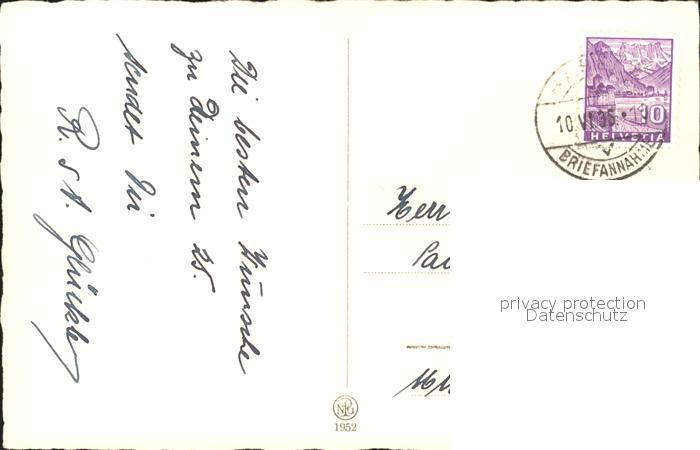 Die besten Wünsche
zu Deinem 25.
sendet Dir
R. s A. Glückler
10.VI.36
BRIEFANNAHME
10
HELVETIA
Herr
privacy protection
Datenschutz
1952